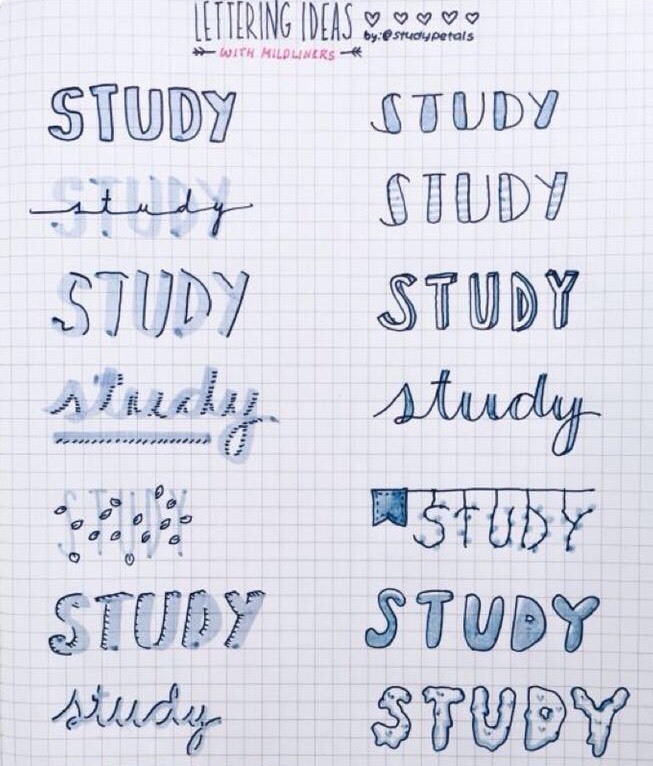 LETTERING IDEAS
by:@studypetals
WITH MILDLINERS
STUDY STUDY
STUDY study STUDY
STUDY STUDY
study study
STUDY STUDY
STUDY STUDY
study STUDY